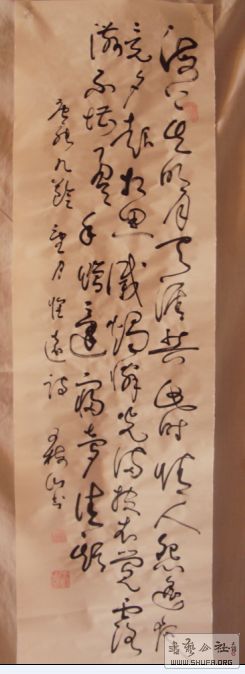 海上生明月天涯共此時情人怨遙夜
竟夕起相思滅燭憐光滿披衣覺露
滋不堪盈手贈還寢夢佳期
唐張九齡望月懷遠詩
書
公社
WWW.SHUFA.ORG